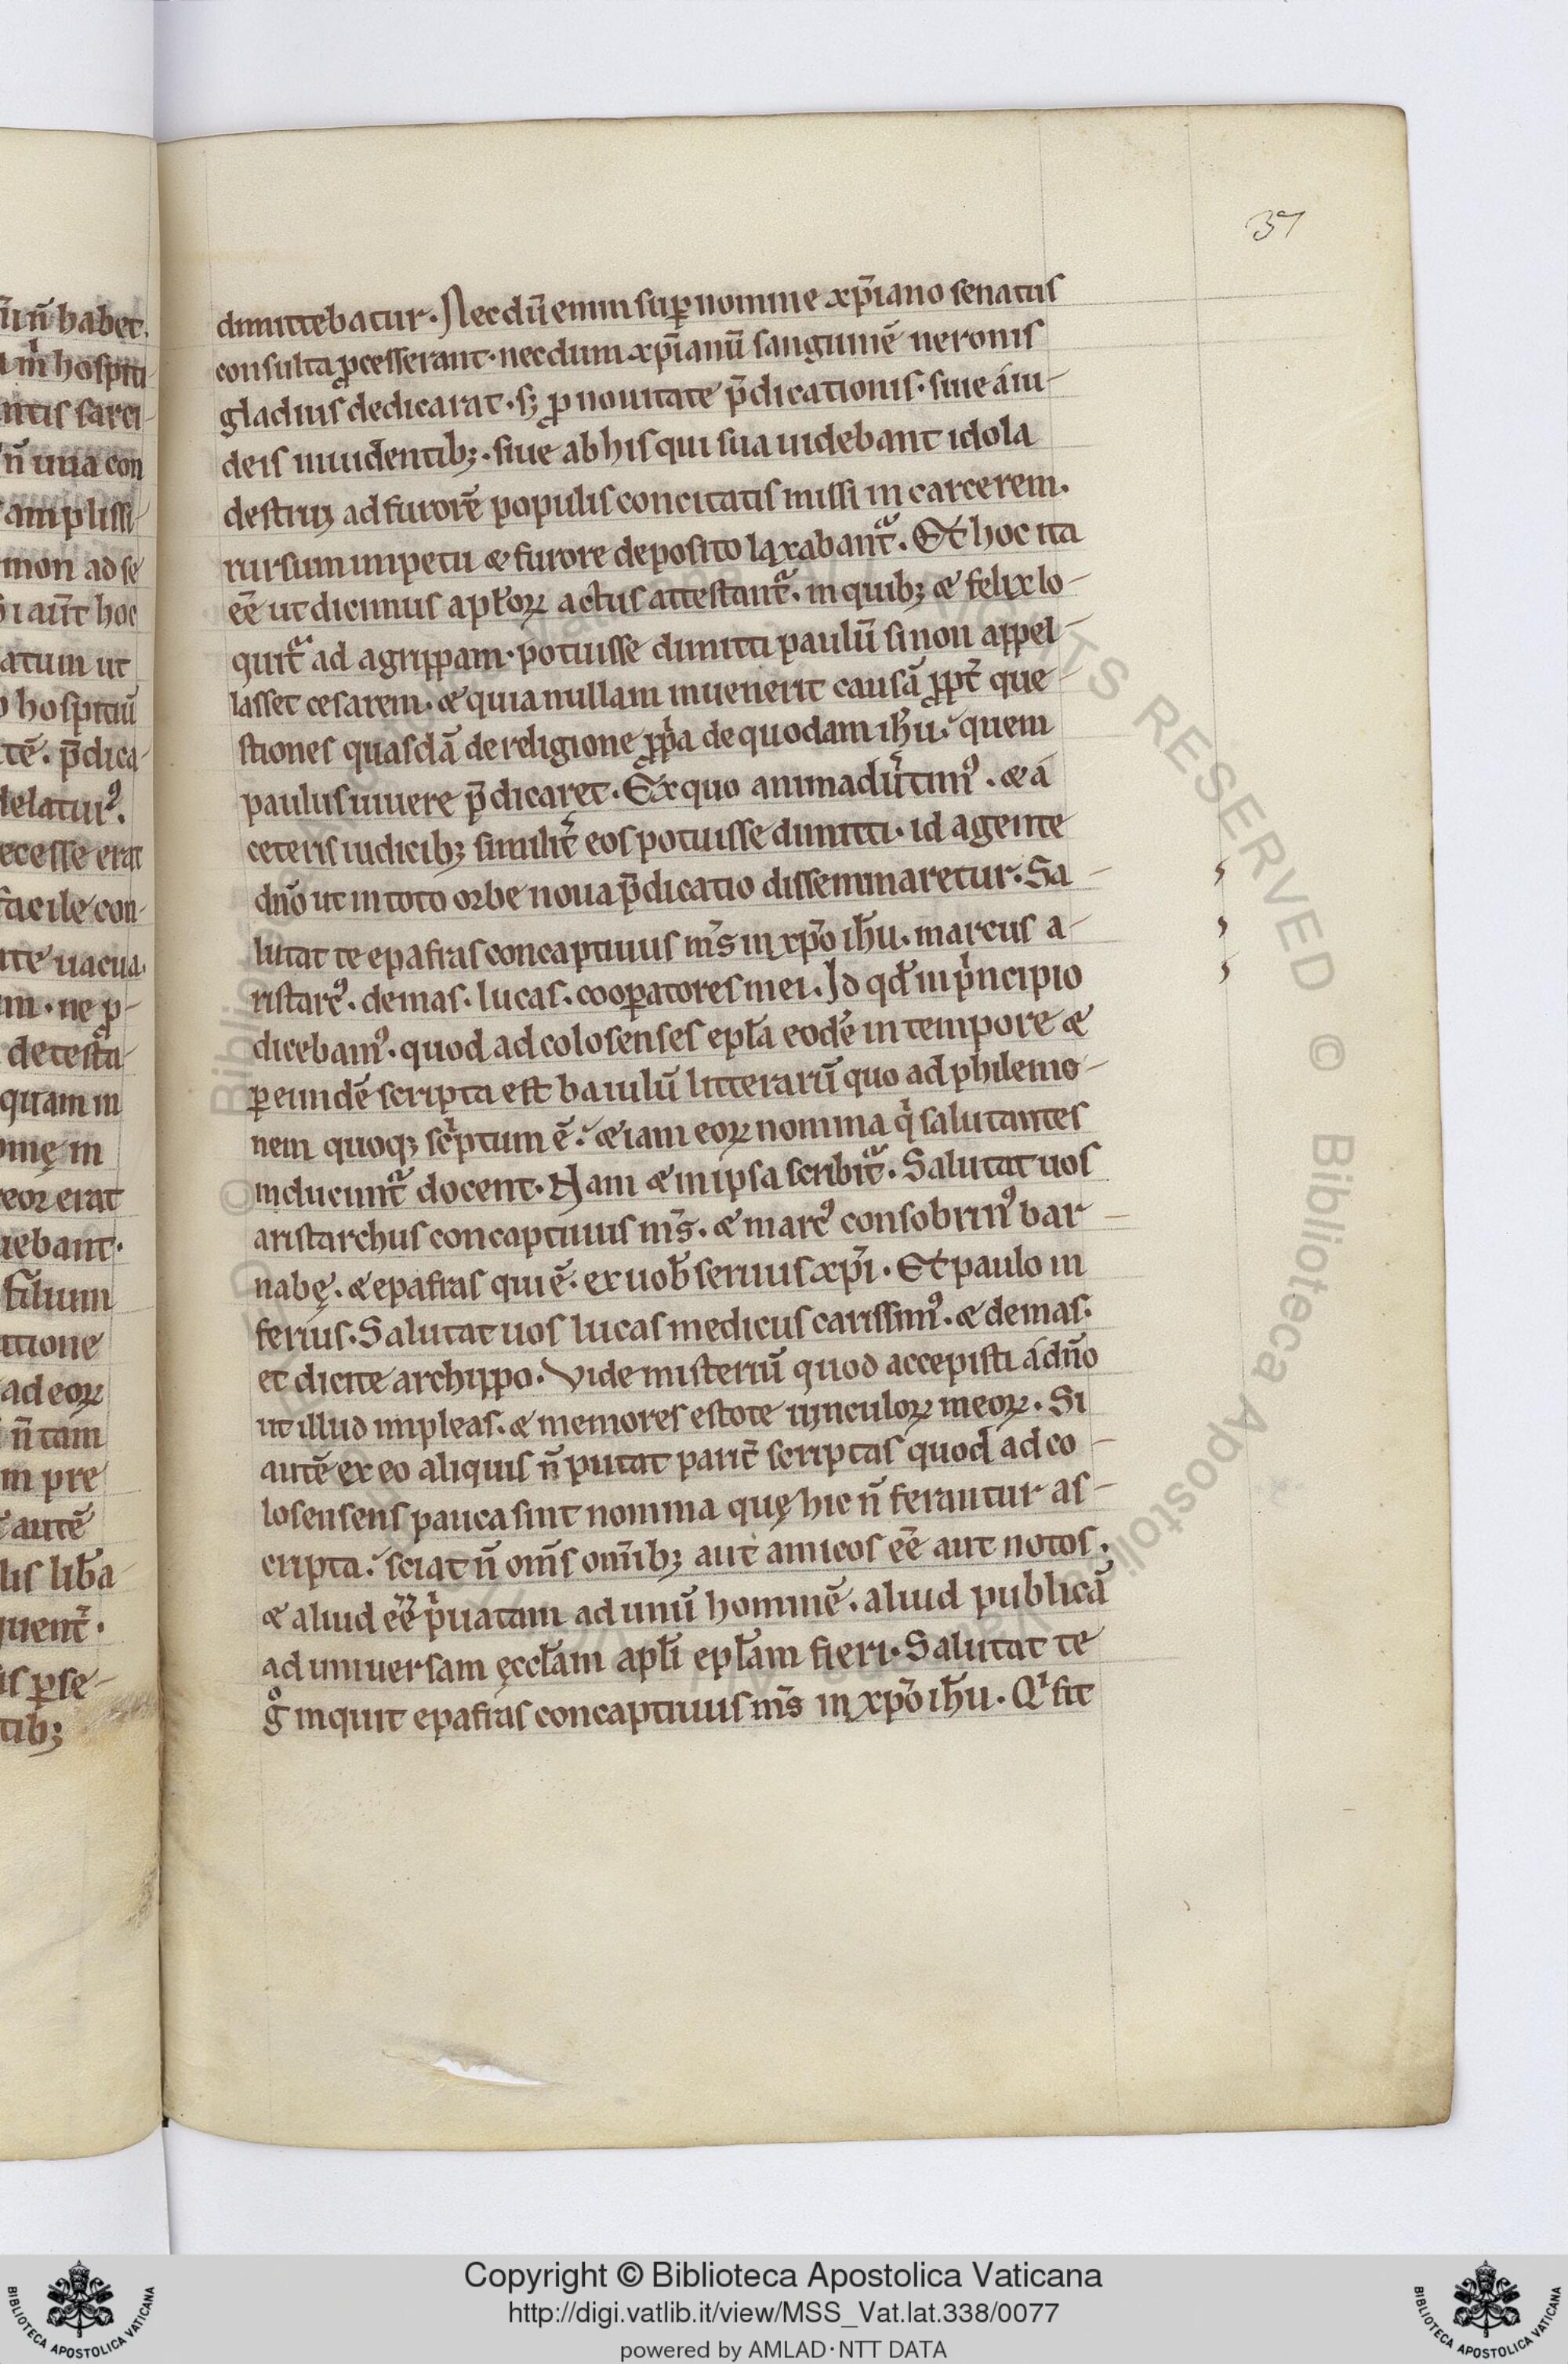 37
dimittebatur. Nec dū enim sup̱ nomine xp̄iano senatus
consulta ꝓcesserant. necdum xp̄ianū sanguinē neronis
gladius dedicarat. sꝫ ꝓ nouitate p̄dicationis. siue á iu-
deis inuidentibꝫ. siue ab his qui sua uidebant idola
destrui, ad furorē populis concitatis missi in carcerem.
rursum impetu & furore deposito laxabant᷑. Et hoc ita
eē ut dicimus apl̄oꝝ actus attestant᷑. in quibꝫ & felix lo-
quit᷑ ad agrippam. potuisse dimitti paulū si non appel-
lasset cesarem. & quia nullam inuenerit causā ꝓpt̄ que-
stiones quasdā de religione ꝓp̍a de quodam ih̄u. quem
paulus uiuere p̄dicaret. Ex quo animadūtimꝰ. & á
ceteris iudicibꝫ similit̄ eos potuisse dimitti. id agente
dn̄o ut in toto orbe noua p̄dicatio disseminaretur. Sa-
lutat te epafras concaptiuus nr̄s in xp̄o ih̄u. marcus a-
ristarcꝰ. demas. lucas. cooꝑatores mei. Id qd̄ in p̍ncipio
dicebamꝰ. quod ad colosenses epl̄a eodē in tempore &
ꝑ eundē scripta est baiulū litterarū quo ad philemo-
nem quoqꝫ sc̍ptum ē. & iam eoꝝ nomina q̍ salutantes
inducunt᷑ docent. Nam & in ipsa scribit᷑. Salutat uos
aristarchus concaptiuus m̄s. & marcꝰ consobrinꝰ bar-
nabę. & epafras qui ē. ex uob̄ seruus xp̄i. Et paulo in
ferius. Salutat uos lucas medicus carissimꝰ. & demas.
et dicite archippo. Vide misteriū quod accepisti á dn̄o
ut illud impleas. & memores estote uinculoꝝ meoꝝ. Si
autē ex eo aliquis n̄ putat parit̄ scriptas quod ad co-
losensens pauca sint nomina quę hic n̄ ferantur as-
cripta. sciat n̄ om̄s om̄ibꝫ aut amicos eē aut notos.
& aliud eē p̍uatam ad unū hominē. aliud publicā
ad uniuersam ęccl̄am apl̄i epl̄am fieri. Salutat te
g̊ inquit epafras concaptiuus m̄s in xp̄o ih̄u. Q̍ fit
Copyright © Biblioteca Apostolica Vaticana
http://digi.vatlib.it/view/MSS_Vat.lat.338/0077
powered by AMLAD·NTT DATA